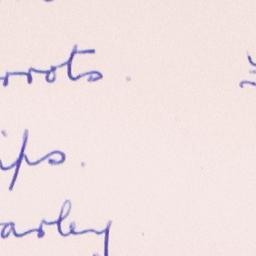 rrots.
ips.
arley